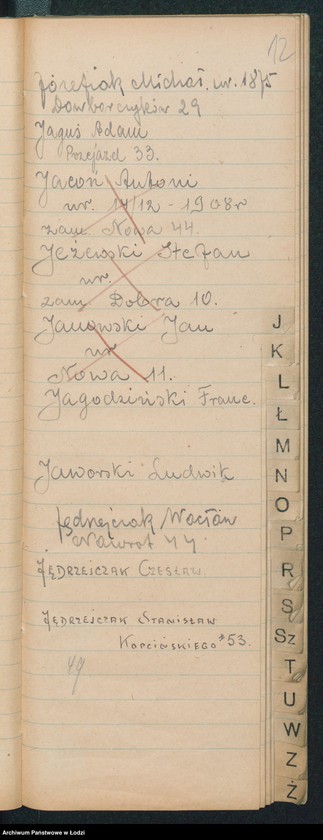 12
Józefiak Michał. ur. 1875
Dowborczyków 29
Jaguś Adam
Przejazd 33.
Jacoń Antoni
ur. 17/12 - 1908r
zam. Nowa 44.
Jeżewski Stefan
ur.
zam. Dobra 10.
Janowski Jan
ur
Nowa 11.
Jagodziński Franc.
Jaworski Ludwik
Jędrzejczak Wacław
Nawrot 44
JĘDRZEJCZAK CZESŁAW
JĘDRZEJCZAK STANISŁAW
53.
49
J
K
L
Ł
M
N
O
P
R
S
Sz
T
U
W
Z
Ż
Archiwum Państwowe w Łodzi